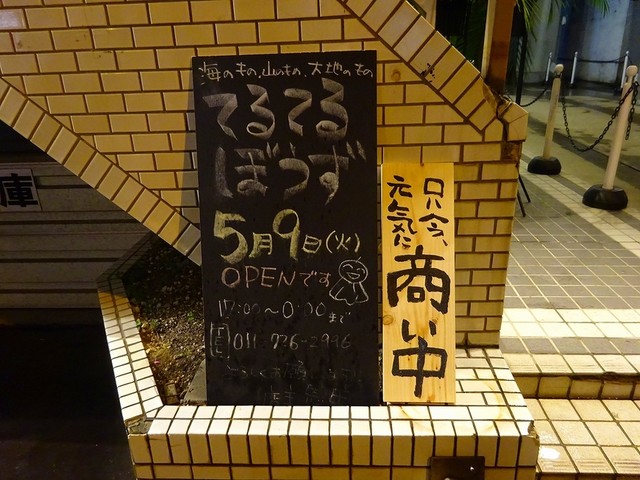 海のもの、山のもの、大地のもの
てるてる
ぼうず
5月9日(火)
OPENです
17:00〜0:00まで
TEL 011-736-2996
只今、
元気に
商い中
庫